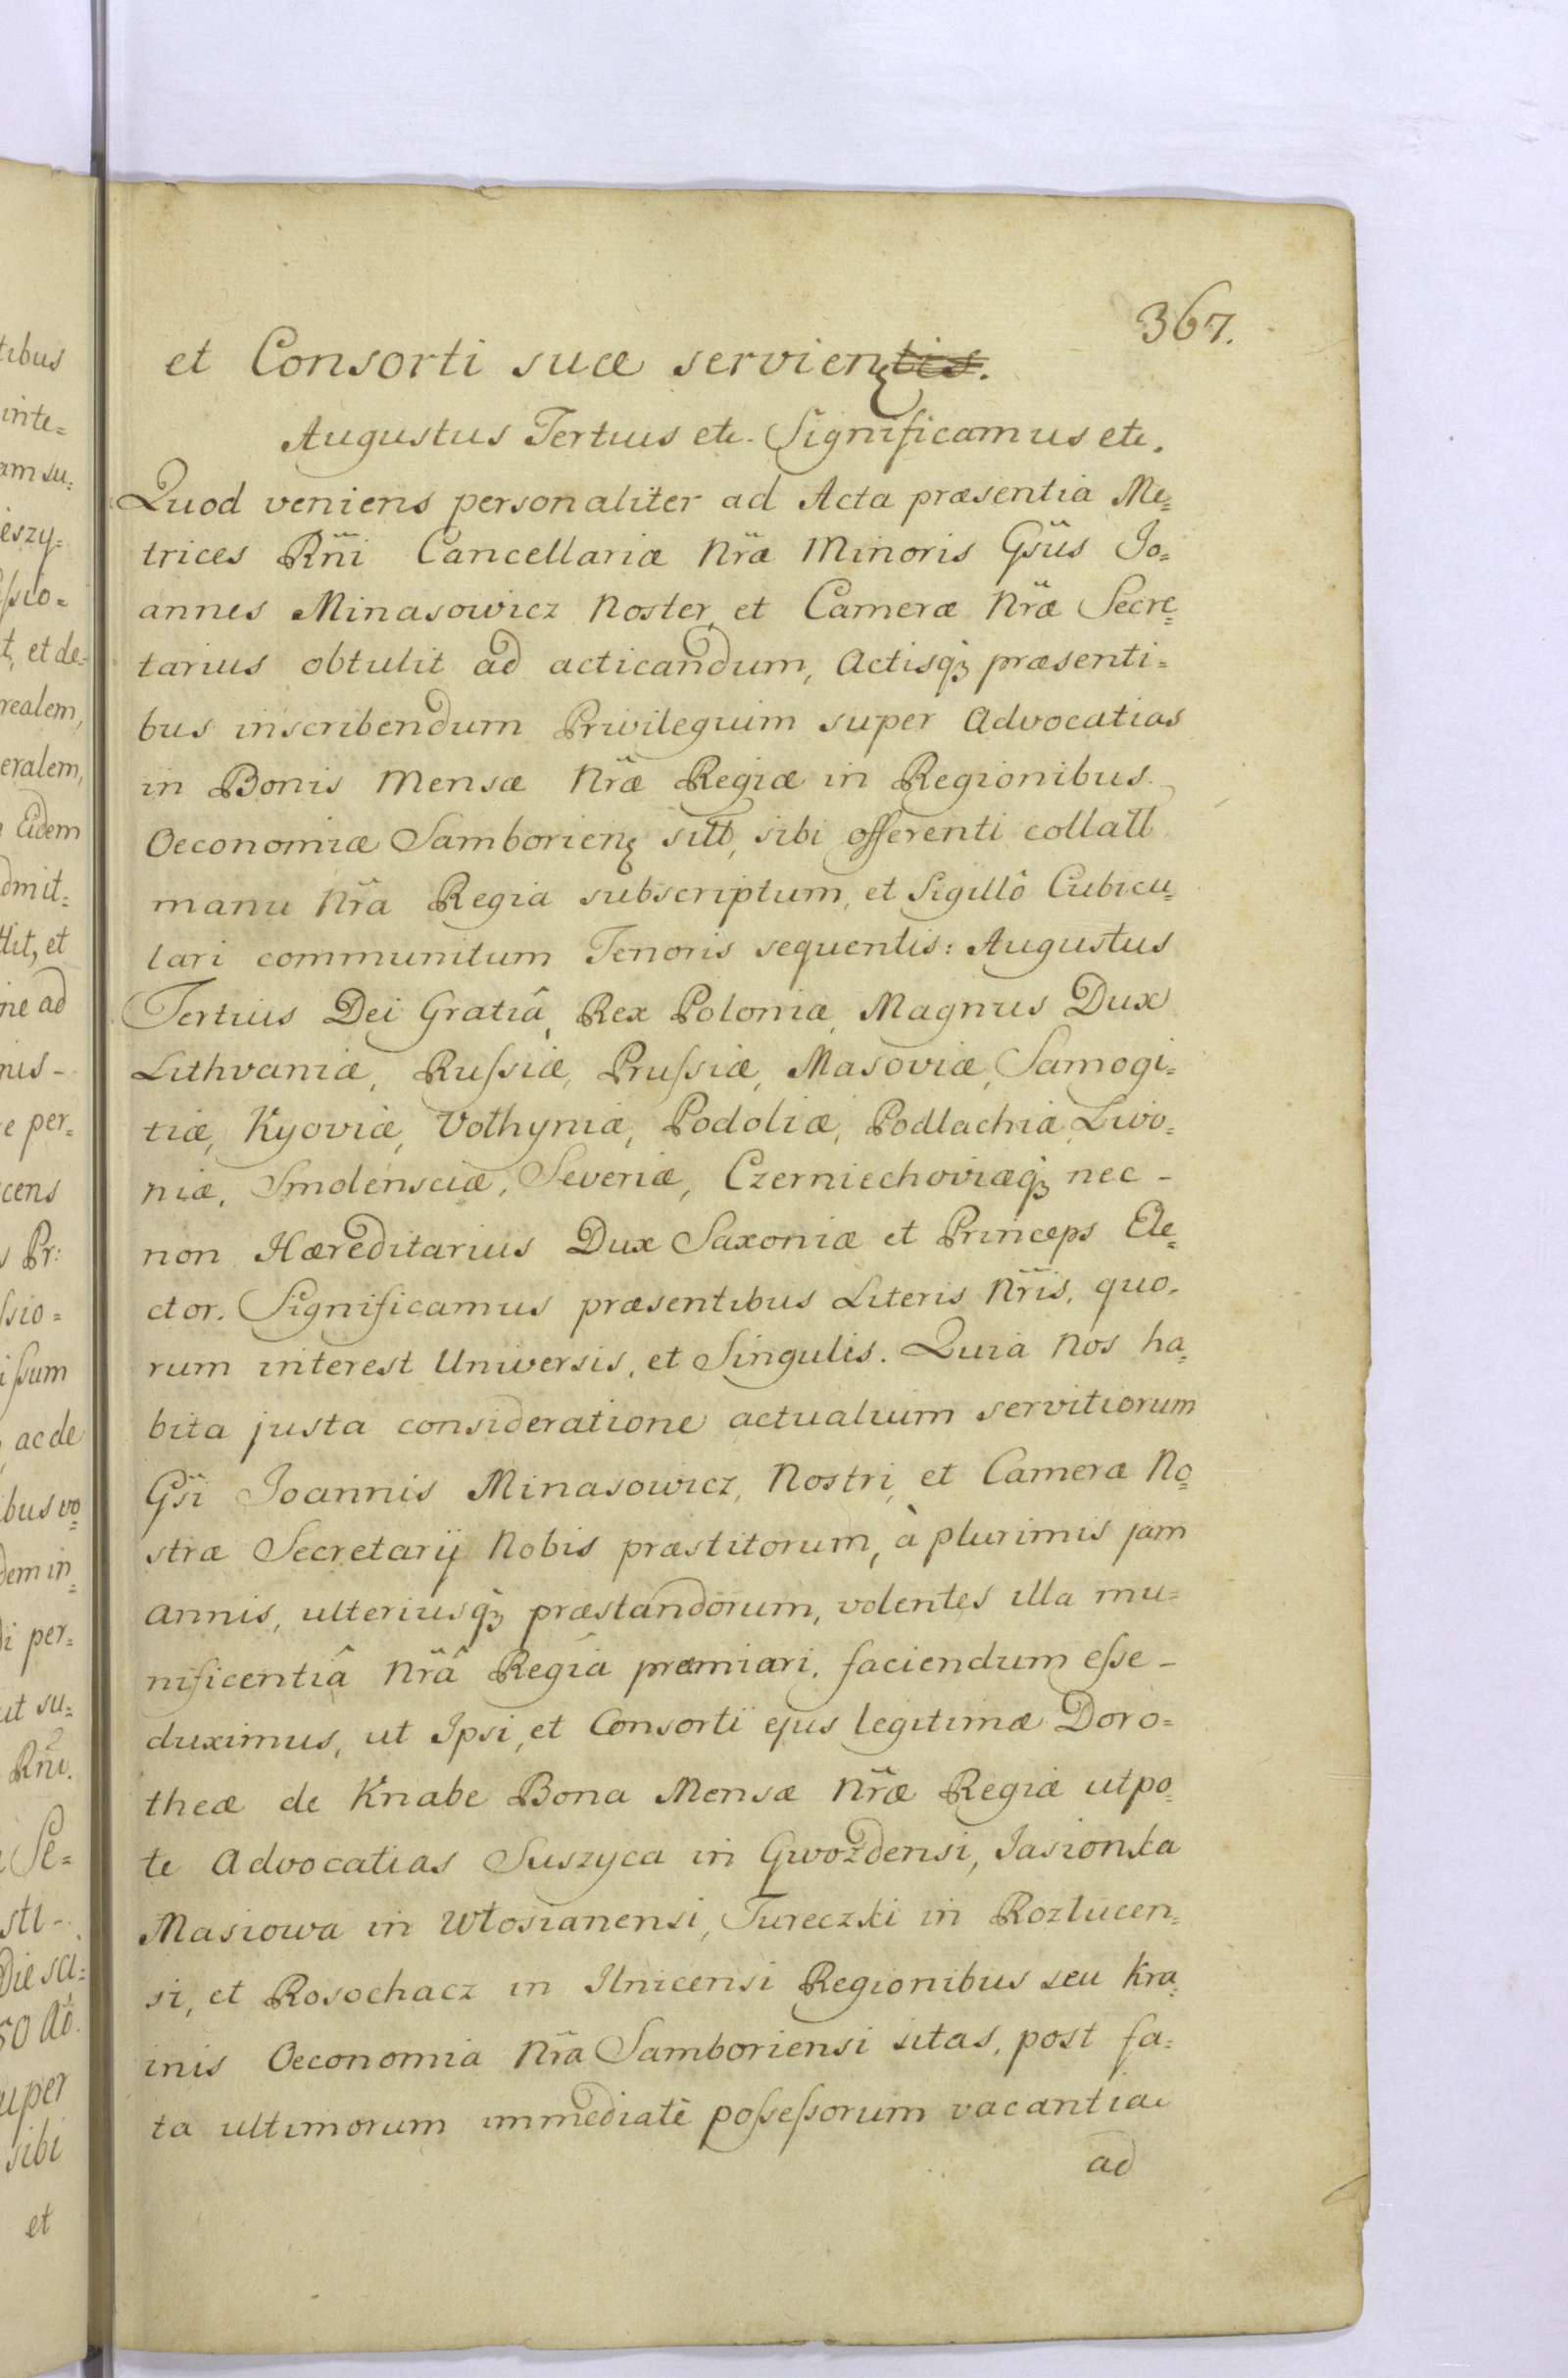 367.
et Consorti suæ servien[tis].
Augustus Tertius etc. Significamus etc.
Quod veniens personaliter ad Acta præsentia Me=
trices Rñi Cancellariæ Nr̃æ Minoris Gs̃us Jo=
annes Minasowicz Noster, et Cameræ Nr̃æ Secre=
tarius obtulit ad acticandum, Actisq₃ præsenti=
bus inscribendum Privilegium super Advocatias
in Bonis Mensæ Nr̃æ Regiæ in Regionibus
Oeconomiæ Samborien sitt, sibi offerenti collatt
manu Nr̃a Regia subscriptum, et Sigillô Cubicu=
lari communitum Tenoris sequentis: Augustus
Tertius Dei Gratiâ, Rex Poloniæ, Magnus Dux
Lithvaniæ, Russiæ, Prussiæ, Masoviæ, Samogi=
tiæ, Kyoviæ, Volhyniæ, Podoliæ, Podlachiæ, Livo=
niæ, Smolensciæ, Severiæ, Czerniechoviæq₃ nec -
non Hæreditarius Dux Saxoniæ et Princeps Ele=
ctor. Significamus præsentibus Literis Nr̃is, quo=
rum interest Universis, et Singulis. Quia Nos ha=
bita justa consideratione actualium servitiorum
Gs̃i Joannis Minasowicz, Nostri, et Cameræ No=
stræ Secretarij Nobis præstitorum, à plurimis jam
annis, ulteriusq₃ præstandorum, volentes illa mu=
nificentiâ Nr̃â Regiâ præmiari, faciendum esse -
duximus, ut Ipsi, et Consorti ejus legitimæ Doro=
theæ de Knabe Bona Mensæ Nr̃æ Regiæ utpo=
te Advocatias Suszyca in Gwozdensi, Jasionka
Masiowa in Włosianensi, Tureczki in Rozlucen=
si, et Rosochacz in Ilnicensi Regionibus seu Kra=
inis Oeconomia Nr̃a Samboriensi sitas, post fa=
ta ultimorum immediatè possessorum vacantia
ad
tibus
inte=
am su=
ieszy=
ssio=
t, et de=
realem,
eralem,
Eidem
dmit=
ttit, et
ne ad
nis -
e per=
cens
Pr:
ssio=
issum
ac de
ibus vo=
dem in=
di per=
ut su=
Rñi.
Se=
sti -
Die sa=
uper
sibi
et